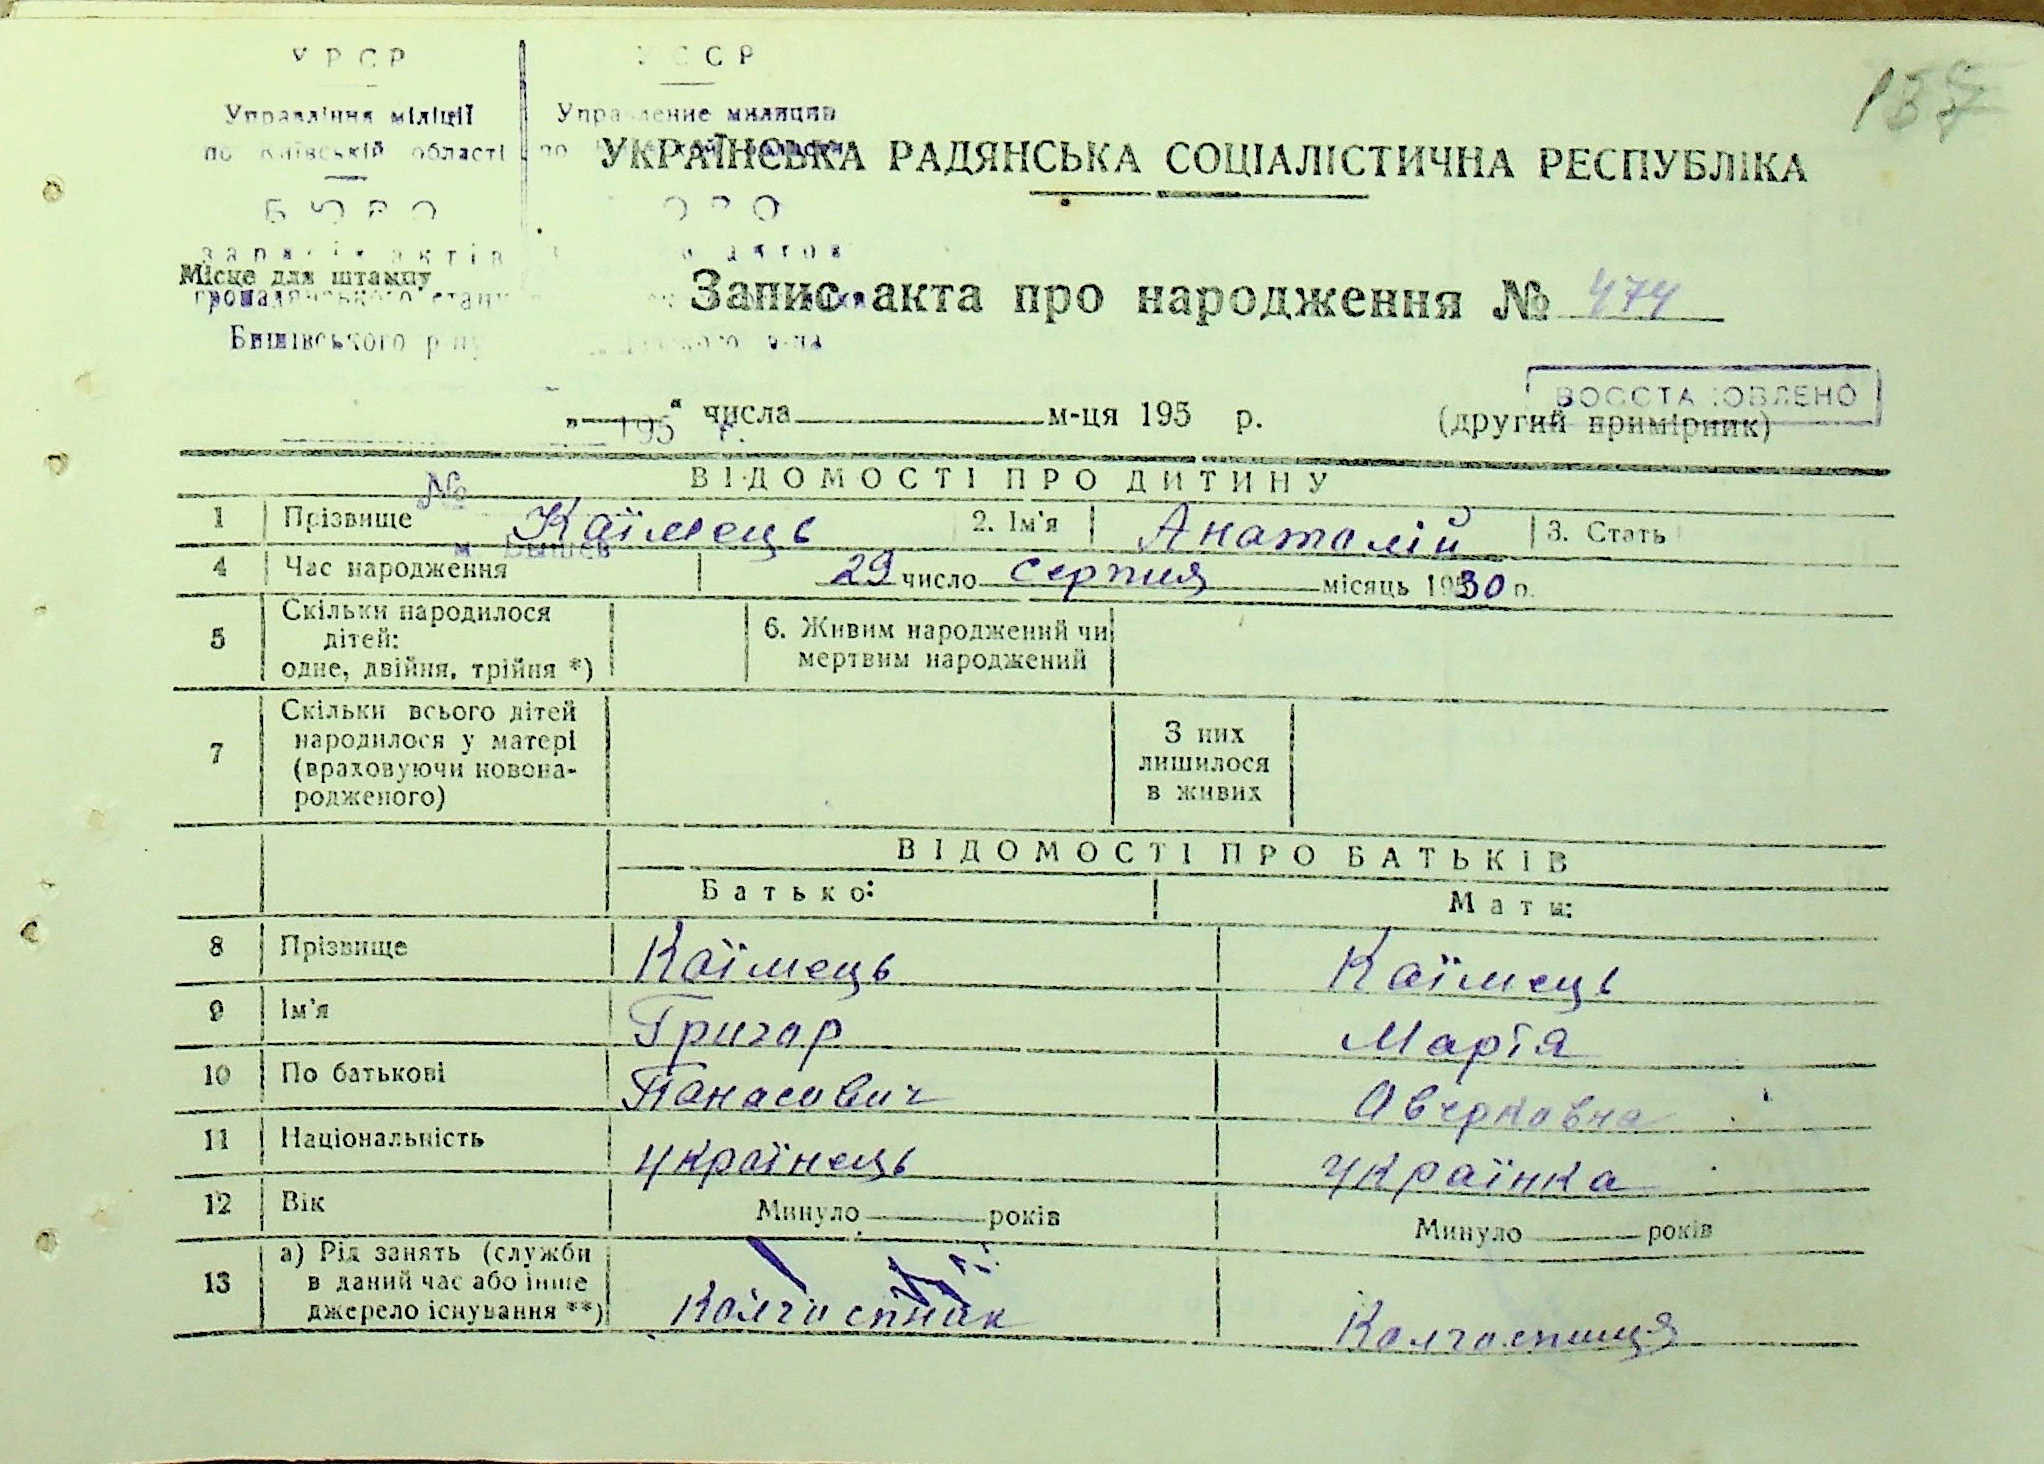 УРСР
УССР
137
Управління міліції
Управление милиции
по Київській області
по
УКРАЇНСЬКА РАДЯНСЬКА СОЦІАЛІСТИЧНА РЕСПУБЛІКА
БЮРО
записів актів
актов
Місце для штампу
громадянського стану
Запис акта про народження № 474
Бишівського р-ну
р-на
ВОССТАНОВЛЕНО
„ “ числа м-ця 195 р.
(другий примірник)
195 г.
ВІДОМОСТІ ПРО ДИТИНУ
№
1 Прізвище Каїмець 2. Ім'я Анатолій 3. Стать
м. Бышев
4 Час народження 29 число серпня місяць 1930 р.
5 Скільки народилося дітей: одне, двійня, трійня *)
6. Живим народжений чи мертвим народжений
7 Скільки всього дітей народилося у матері (враховуючи новонародженого)
З них лишилося в живих
ВІДОМОСТІ ПРО БАТЬКІВ
Батько: Мати:
8 Прізвище Каїмець Каїмець
9 Ім'я Григор Марія
10 По батькові Панасович Аверковна
11 Національність українець українка
12 Вік Минуло років Минуло років
13 а) Рід занять (служби в даний час або інше джерело існування **) Колгоспник Колгоспниця